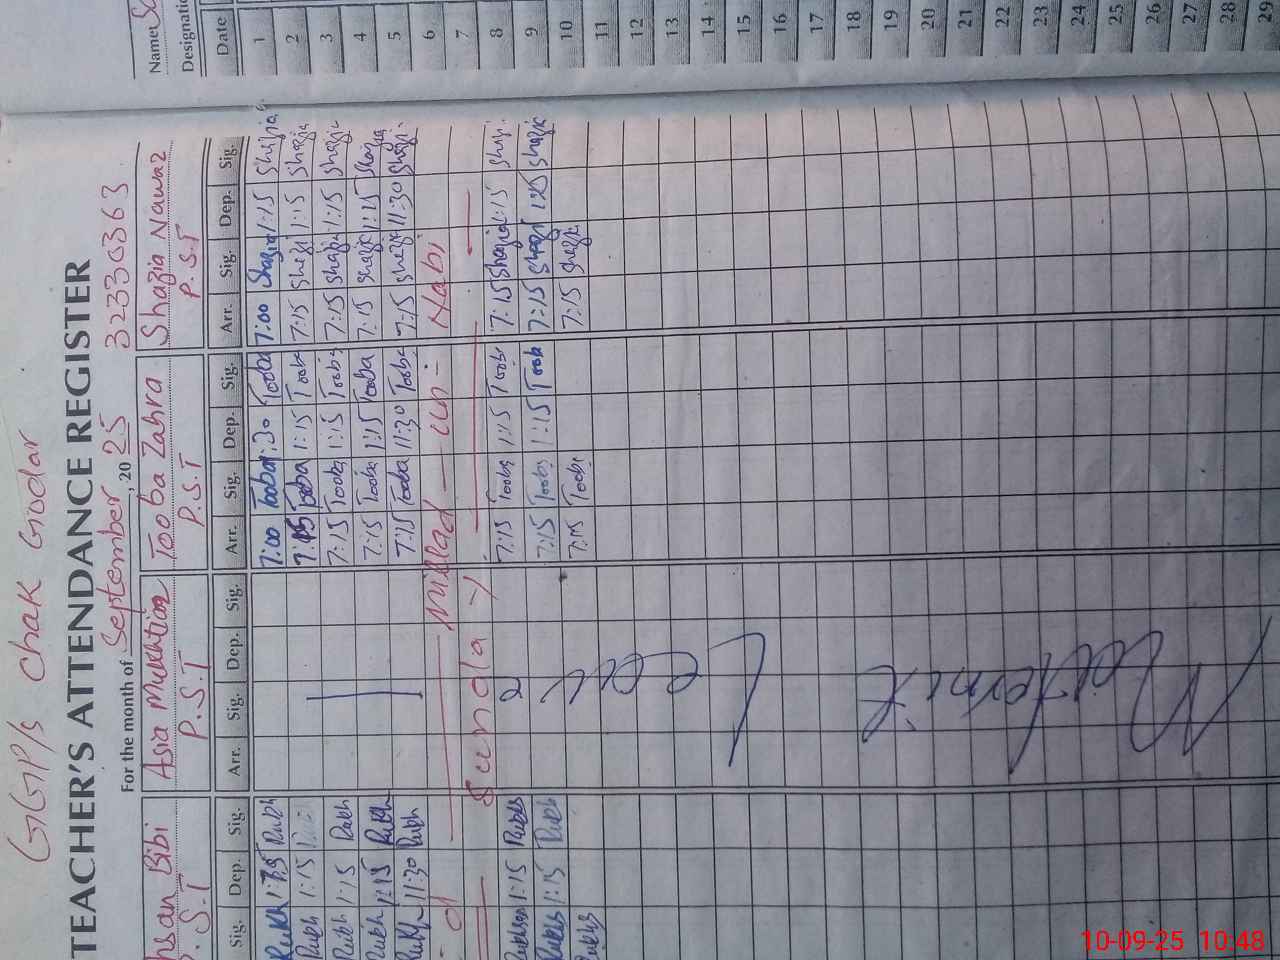 GGP/s Chak Godar
TEACHER'S ATTENDANCE REGISTER
For the month of September, 2025 32330363
Bibi Asia Mukhtiar Tooba Zahra Shazia Nawaz
S.T P.S.T P.S.T P.S.T
Sig. Dep. Sig. Arr. Sig. Dep. Sig. Arr. Sig. Dep. Sig. Arr. Sig. Dep. Sig.
Rukh Rukh 7:00 Tooba Tooba 7:00 Shazia 1:15 Shazia
Rukh 1:15 Tooba 1:15 Tooba 7:15 Shazi 1:15 Shazia
Rukh 1:15 Rukh 7:15 Tooba 1:15 Tooba 7:15 Shazi 1:15 Shazia
Rukh 1:15 Rukh 7:15 Tooba 1:15 Tooba 7:15 Shazi 1:15 Shazia
Rukh 11:30 Rukh 7:15 Tooba 11:30 Tooba 7:15 Shazi 11:30 Shazi
Millad un Nabi
Sunday
1:15 Rukh 7:15 Tooba 1:15 Tooba 7:15 Shazia 1:15 Shazi
Rukh 1:15 Rukh 7:15 Tooba 1:15 Toob 7:15 Shazi 1:15 Shazia
Rukh 7:15 Tooba 7:15 Shazi
Name
Designati
Date
1
2
3
4
5
6
7
8
9
10
11
12
13
14
15
16
17
18
19
20
21
22
23
24
25
26
27
28
29
10-09-25 10:48